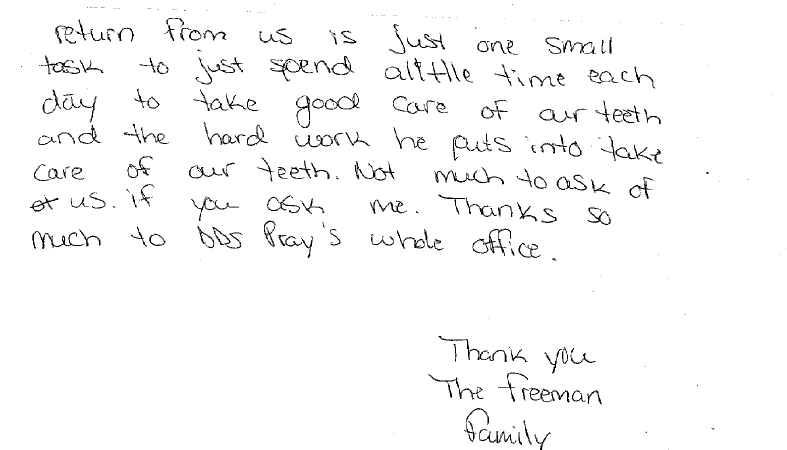 return from us is just one small
task to just spend alittle time each
day to take good care of our teeth
and the hard work he puts into take
care of our teeth. Not much to ask of
of us. if you ask me. Thanks so
much to DDS Pray's whole office.
Thank you
The Freeman
Family